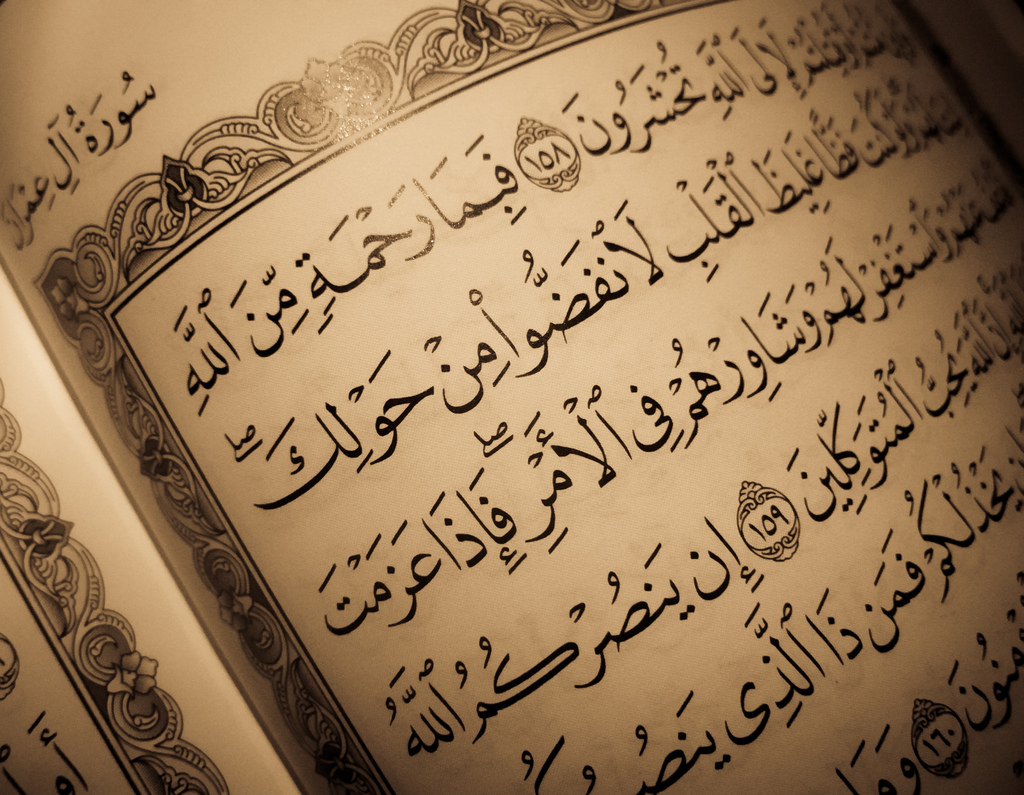 سُورَةُ آلِ عِمۡرَانَ
لَإِلَى ٱللَّهِ تُحۡشَرُونَ ١٥٨ فَبِمَا رَحۡمَةٍ مِّنَ ٱللَّهِ
كُنتَ فَظًّا غَلِيظَ ٱلۡقَلۡبِ لَٱنفَضُّواْ مِنۡ حَوۡلِكَۖ
وَٱسۡتَغۡفِرۡ لَهُمۡ وَشَاوِرۡهُمۡ فِي ٱلۡأَمۡرِۖ فَإِذَا عَزَمۡتَ
ٱللَّهَ يُحِبُّ ٱلۡمُتَوَكِّلِينَ ١٥٩ إِن يَنصُرۡكُمُ ٱللَّهُ
يَخۡذُلۡكُمۡ فَمَن ذَا ٱلَّذِي يَنصُرُكُم
١٦٠ وَمَا